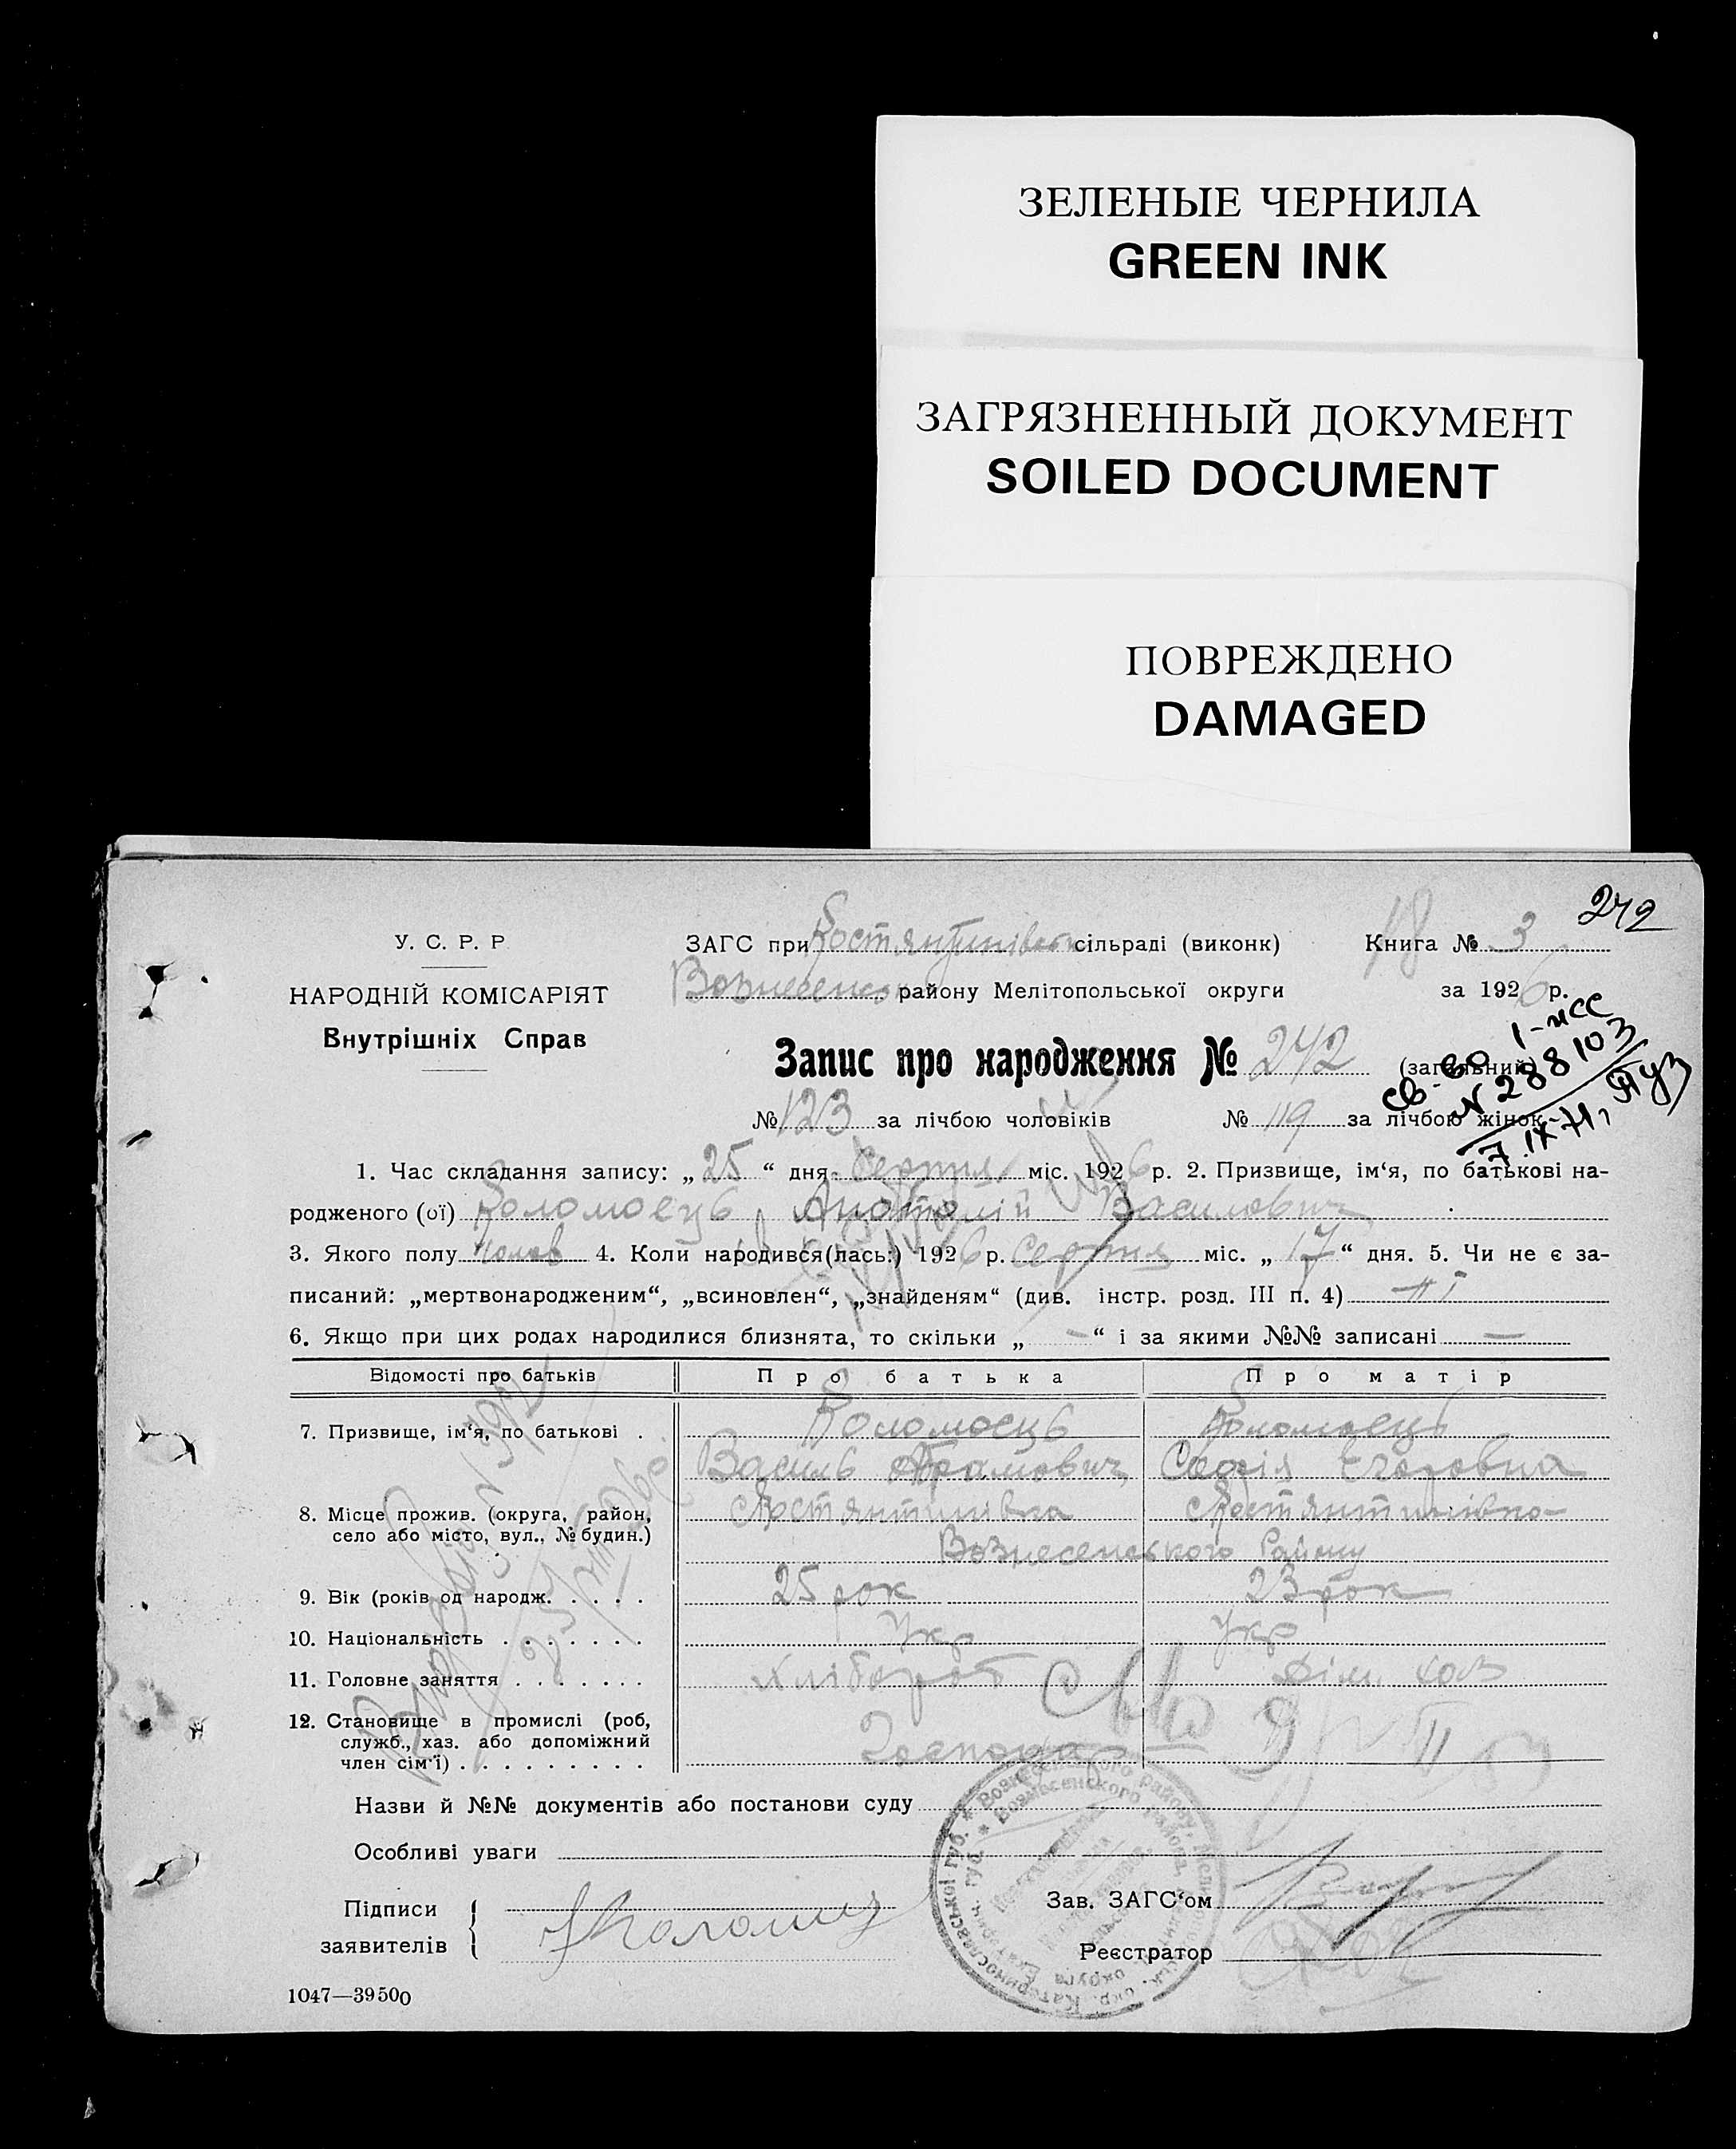 ЗЕЛЕНЫЕ ЧЕРНИЛА
GREEN INK
ЗАГРЯЗНЕННЫЙ ДОКУМЕНТ
SOILED DOCUMENT
ПОВРЕЖДЕНО
DAMAGED
242
У. С. Р. Р
НАРОДНІЙ КОМІСАРІЯТ
Внутрішніх Справ
ЗАГС при Костянтинівськ сільраді (виконк) Книга № 3
Вознесенск району Мелітопольської округи за 1926 р.
Запис про народження № 242 (загальний)
№ 123 за лічбою чоловіків № 119 за лічбою жінок
св-во 1-жс
N 288103
7.IX-71,
1. Час складання запису: „25“ дня Серпня міс. 1926 р. 2. Призвище, ім‘я, по батькові на-
родженого (ої) Коломоець Анатолій Василович
3. Якого полу чолов 4. Коли народився(лась:) 1926 р. Серпня міс. „17“ дня. 5. Чи не є за-
писаний: „мертвонародженим“, „всиновлен“, „знайденям“ (див. інстр. розд. III п. 4) ні
6. Якщо при цих родах народилися близнята, то скільки „ — “ і за якими №№ записані —
Відомості про батьків Про батька Про матір
7. Призвище, ім‘я, по батькові . Коломоець Коломоець
Василь Абрамович Софія Егоровна
8. Місце прожив. (округа, район, село або місто, вул., № будин.) Костянтинівка Костянтинівка
Вознесенського Району
9. Вік (років од народж. . . . . 25 рок 23 рок
10. Національність . . . . . . . Укр Укр
11. Головне заняття . . . . . . . Хлібороб Дім. хоз
12. Становище в промислі (роб, служб., хаз. або допоміжний член сім‘ї) . . . . . . . . . Господар
Назви й №№ документів або постанови суду
Особливі уваги
Підписи
заявителів
Зав. ЗАГС‘ом
Реєстратор
1047—39500